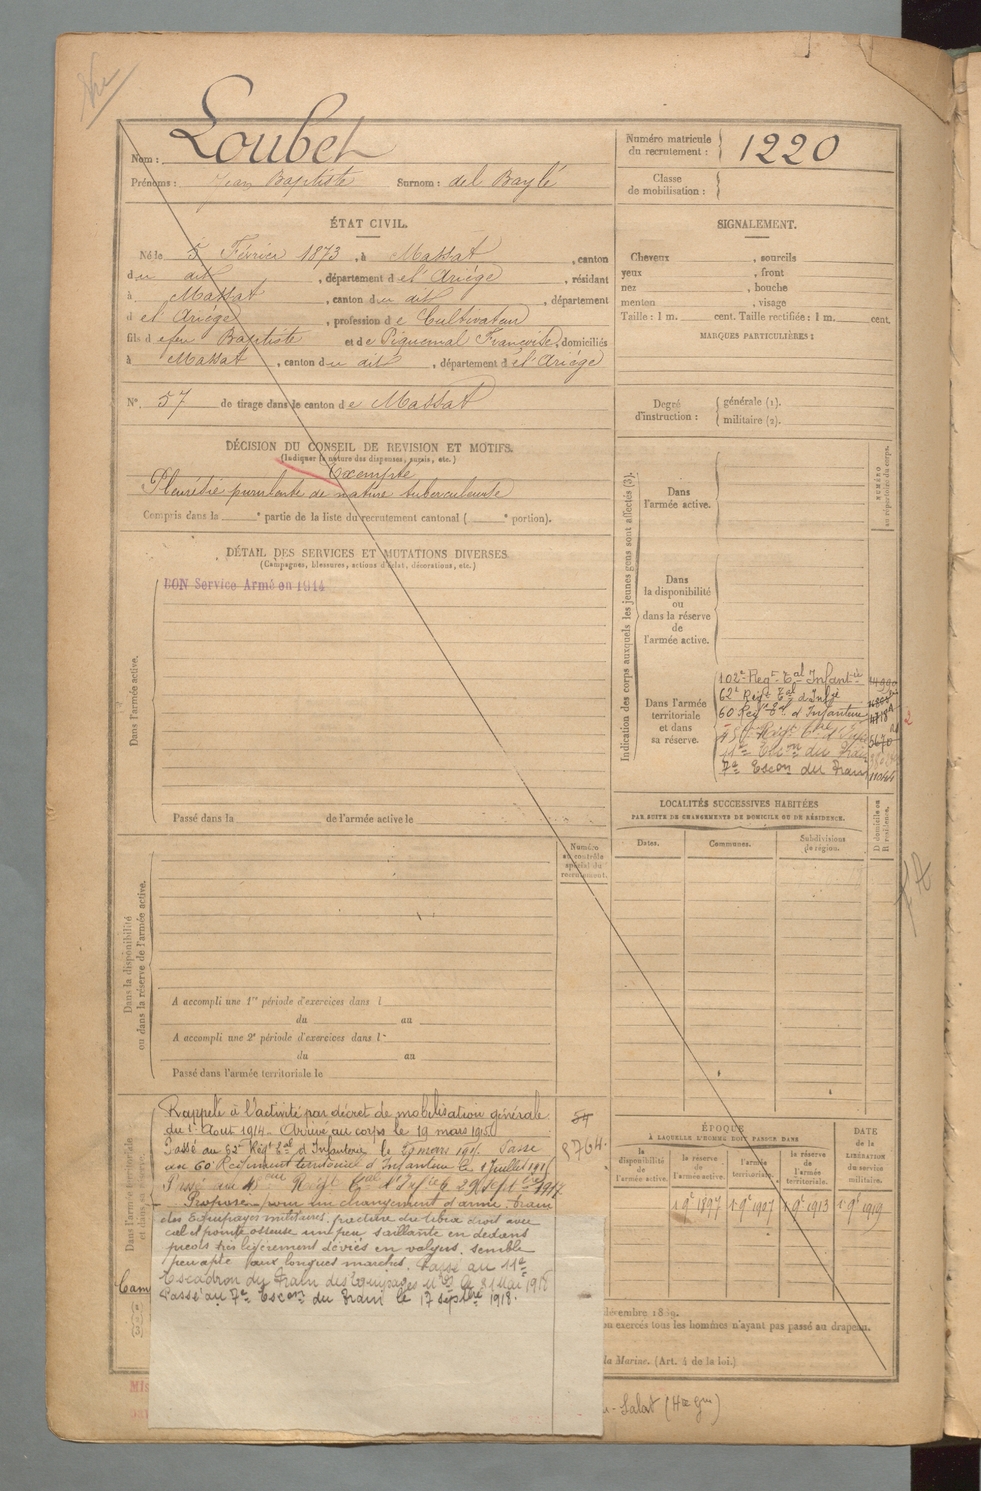 Loubet
Nom :
Prénoms : Jean Baptiste Surnom : del Baylé
Numéro matricule du recrutement : 1220
Classe de mobilisation :
ÉTAT CIVIL.
Né le 5 Février 1873, à Massat, canton
du dit, département de l'Ariège, résidant
à Massat, canton du dit, département
de l'Ariège, profession de Cultivateur
fils de feu Baptiste et de Piquemal Françoise, domiciliés
à Massat, canton du dit, département de l'Ariège
N° 57 de tirage dans le canton de Massat
SIGNALEMENT.
Cheveux , sourcils
yeux , front
nez , bouche
menton , visage
Taille : 1 m. cent. Taille rectifiée : 1 m. cent.
MARQUES PARTICULIÈRES :
Degré d'instruction : générale (1). militaire (2).
DÉCISION DU CONSEIL DE REVISION ET MOTIFS.
(Indiquer la nature des dispenses, sursis, etc.)
Exempté
Pleurésie purulente de nature tuberculeuse
Compris dans la e partie de la liste du recrutement cantonal ( e portion).
DÉTAIL DES SERVICES ET MUTATIONS DIVERSES.
(Campagnes, blessures, actions d'éclat, décorations, etc.)
BON Service Armé en 1914
Dans l'armée active.
Passé dans la de l'armée active le
Indication des corps auxquels les jeunes gens sont affectés (3).
NUMÉRO au répertoire du corps.
Dans l'armée active.
Dans la disponibilité ou dans la réserve de l'armée active.
Dans l'armée territoriale et dans sa réserve.
102e Regt Tal Infantie
62e Régt Tal d'Infie
60 Regt Tal d'Infanterie 4718
5670
11e Escon du Train
7e Escon du Train
LOCALITÉS SUCCESSIVES HABITÉES
PAR SUITE DE CHANGEMENTS DE DOMICILE OU DE RÉSIDENCE.
Dates. Communes. Subdivisions de région. D domicile ou R résidence.
Dans la disponibilité ou dans la réserve de l'armée active.
Numéro au contrôle spécial du recrutement.
A accompli une 1re période d'exercices dans l
du au
A accompli une 2e période d'exercices dans l
du au
Passé dans l'armée territoriale le
Dans l'armée territoriale et dans sa réserve.
Rappelé à l'activité par décret de mobilisation générale
du 1er Août 1914. Arrivé au corps le 19 mars 1915.
Passé au 62e Régt Tal d'Infanterie le mars 1915. Passé
au 60e Régiment territorial d'Infanterie le 1 Juillet 1916
Passé au 45e Régt d'Infie le 29 Septbre 1917
Proposé pour un changement d'arme, train
des Equipages militaires. fracture du tibia droit avec
cal et pointe osseuse un peu saillante en dedans
pieds très légèrement déviés en valgus. semble
peu apte aux longues marches. Passé au 11e
Escadron du Train des Equipages Mres le 31 Mai 1918
Passé au 7e Escon du Train le 17 Septbre 1918.
8764
Cam
ÉPOQUE
À LAQUELLE L'HOMME DOIT PASSER DANS
la disponibilité de l'armée active. la réserve de l'armée active. l'armée territoriale. la réserve de l'armée territoriale.
DATE de la LIBÉRATION du service militaire.
1 9e 1897 1 9e 1907 1 9e 1913 1 9e 1919
on exercés tous les hommes n'ayant pas passé au drapeau.
la Marine. (Art. 4 de la loi.)
Salat (Hte Gne)